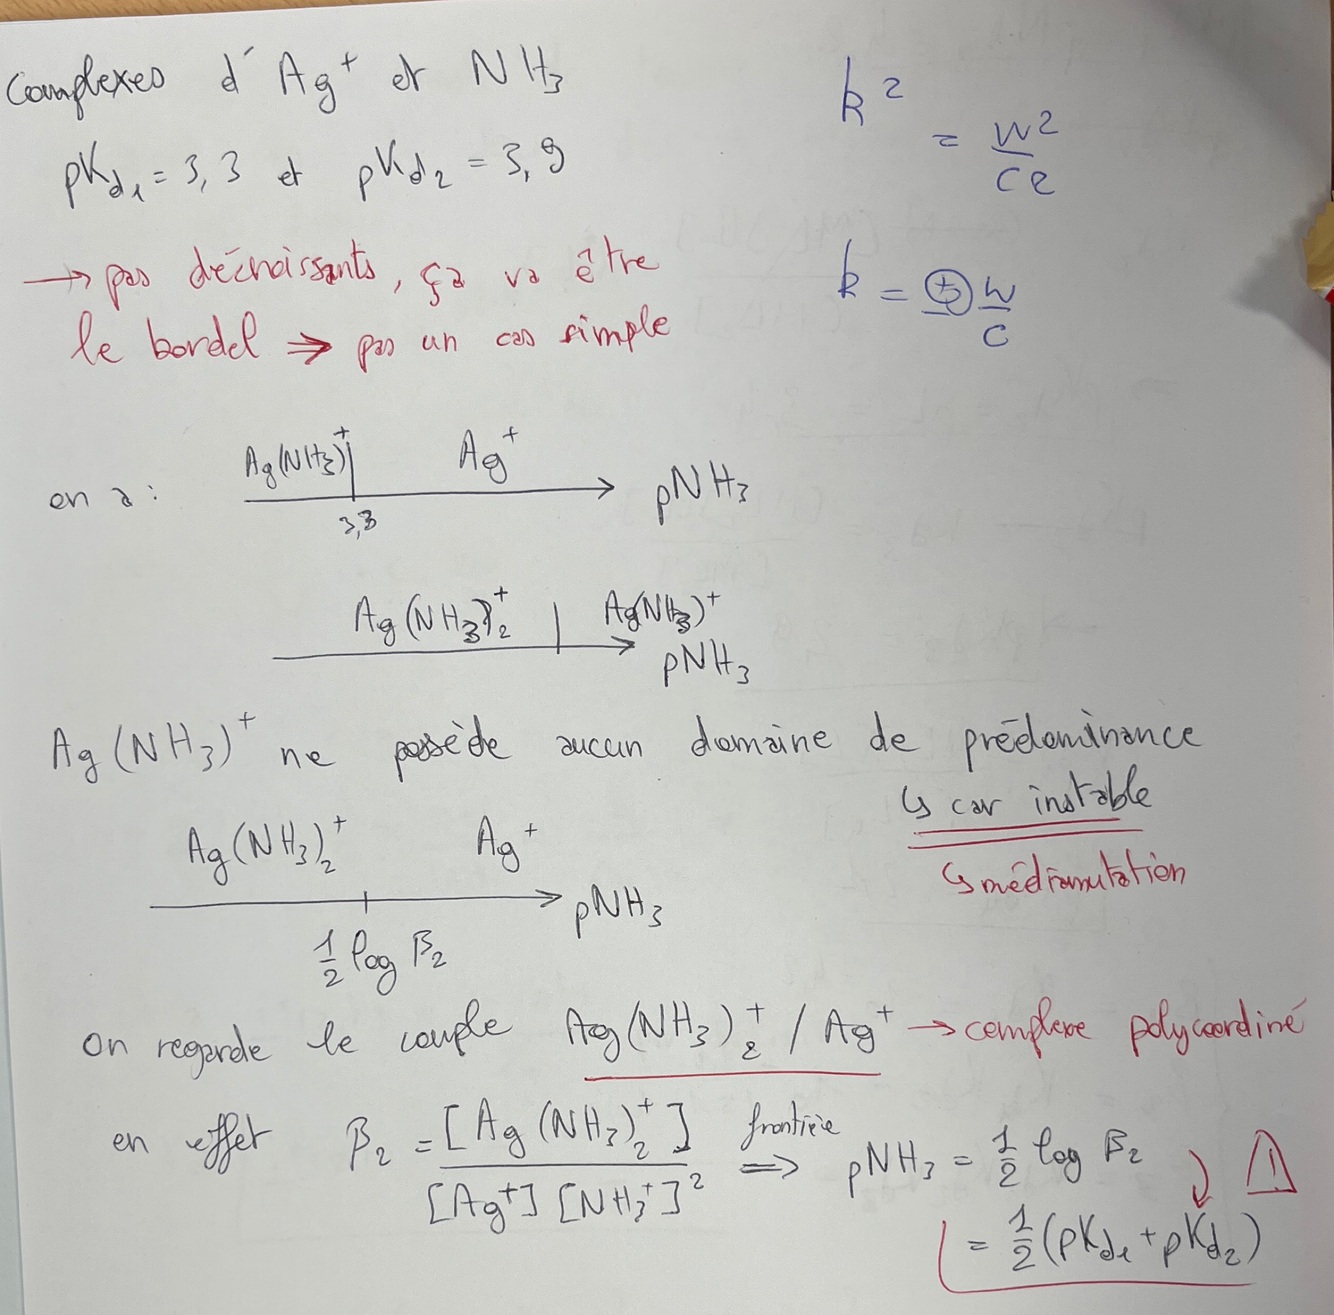 Complexes d' Ag⁺ et NH₃
pKd₁ = 3,3 et pKd₂ = 3,9
→ pas décroissants, ça va être
le bordel ⇒ pas un cas simple
k² = w²/c²
k = ± w/c
en a :
Ag(NH₃)⁺ | Ag⁺
3,3
pNH₃
Ag(NH₃)₂⁺ | Ag(NH₃)⁺
pNH₃
Ag(NH₃)⁺ ne possède aucun domaine de prédominance
↳ car instable
↳ médiamutation
Ag(NH₃)₂⁺ Ag⁺
pNH₃
1/2 log β₂
On regarde le couple Ag(NH₃)₂⁺ / Ag⁺ → complexe polycoordiné
en effet β₂ = [Ag(NH₃)₂⁺] / [Ag⁺][NH₃⁺]² frontière ⇒ pNH₃ = 1/2 log β₂ ⚠
= 1/2 (pKd₁ + pKd₂)